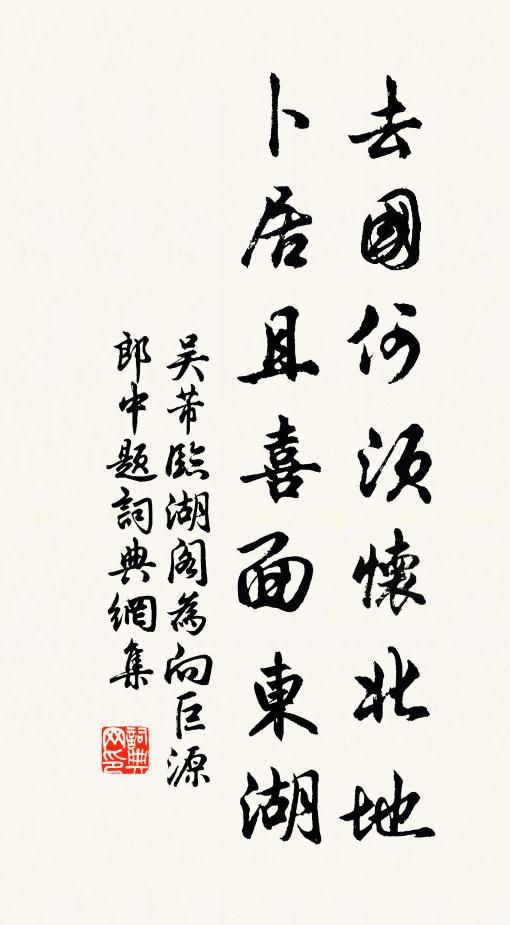 去國何須懷北地
卜居且喜面東湖
吴芾臨湖閣為向巨源
郎中題詞典網集
詞典網印